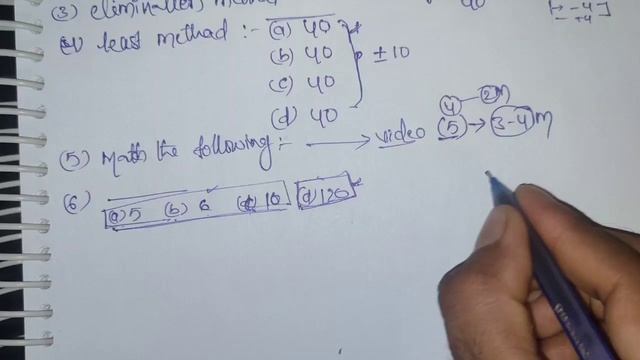 (3) elimination method 40 [+ -4
- +4]
least method :- (a) 40
(b) 40 ± 10
(c) 40
(d) 40
4 - 2m
(5) Math the following :- → video (5) → 3-4 m
(6) (a) 5 (b) 6 (c) 10 (d) 120